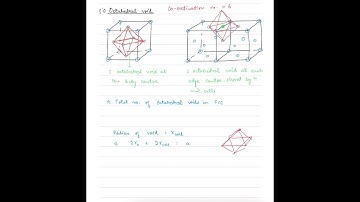 (ii) Octahedral void
Co-ordination no. = 6
1 octahedral void at the body centre
1 octahedral void at each edge centre shared by 4 unit cells
Total no. of octahedral voids in FCC
Radius of void = r_void
2r_o + 2r_void = a